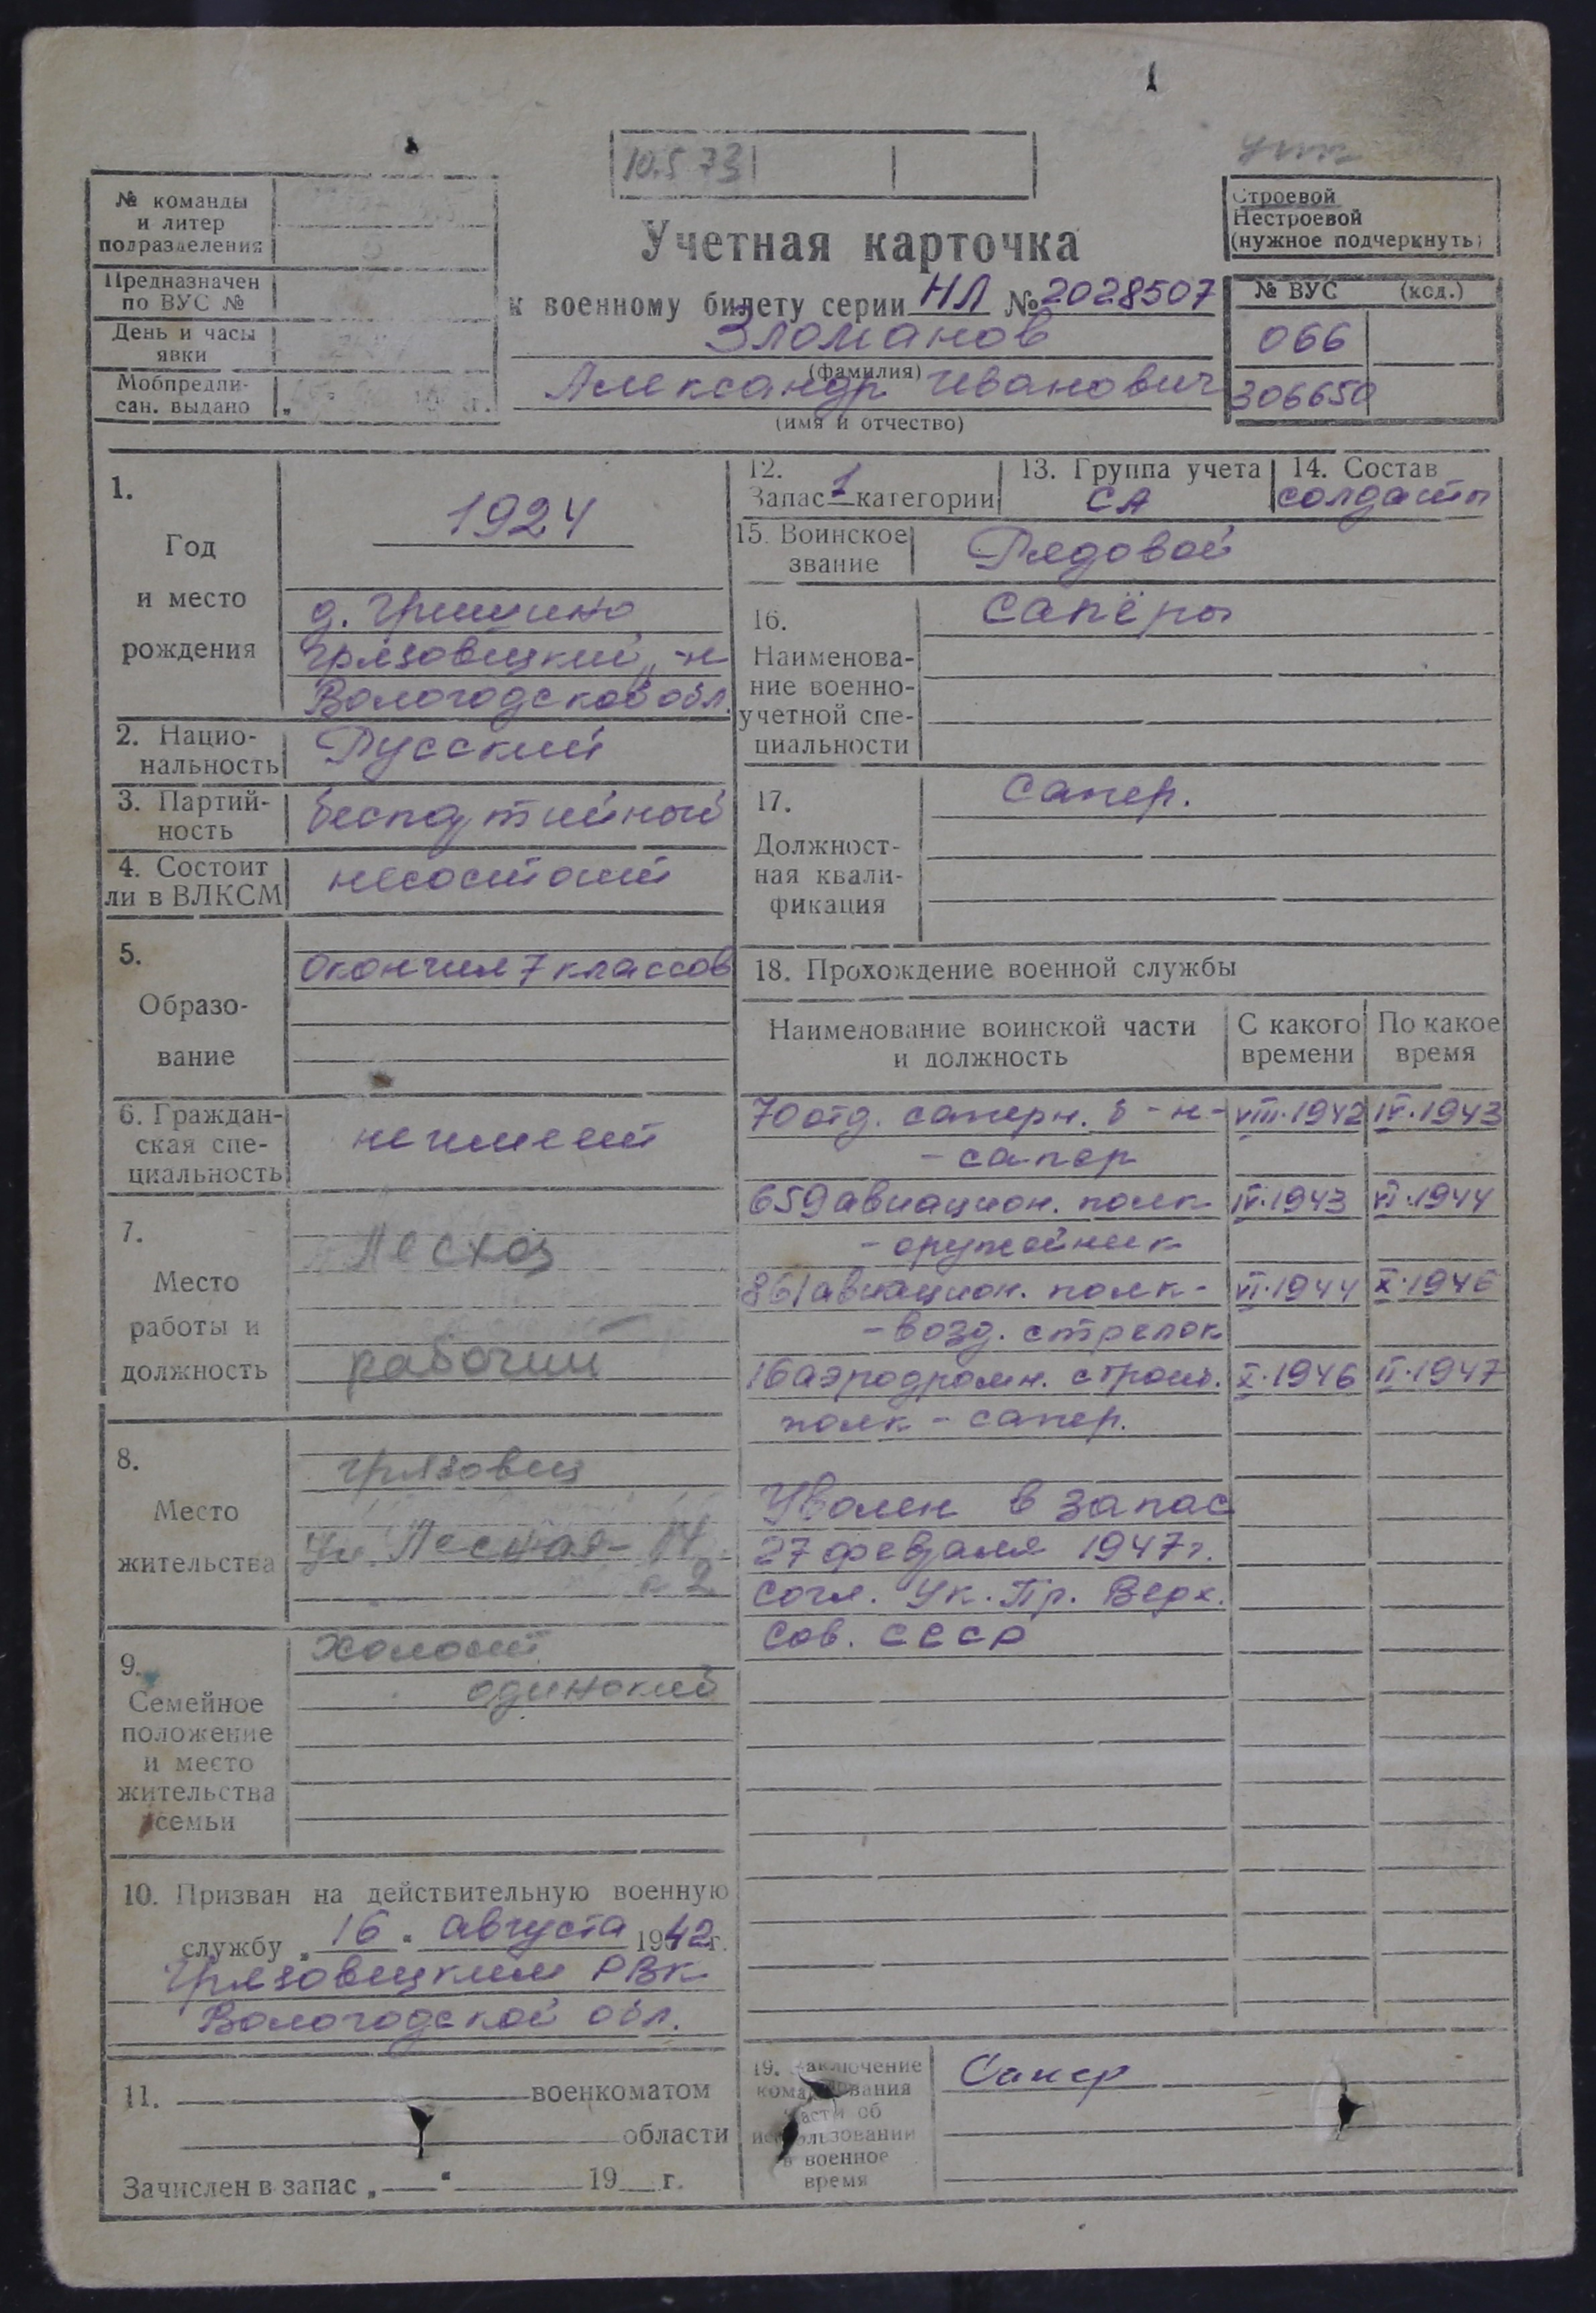 10.5 73
№ команды
и литер
подразделения
Предназначен
по ВУС №
День и часы
явки
Мобпредпи-
сан. выдано
Строевой
Нестроевой
(нужное подчеркнуть)
Учетная карточка
к военному билету серии НЛ № 2028507
Зломанов
(фамилия)
Александр Иванович
(имя и отчество)
№ ВУС (код.)
066
306650
1.
Год
и место
рождения
1924
д. Гришино
Грязовецкий р-н
Вологодской обл.
2. Нацио-
нальность
Русский
3. Партий-
ность
беспартийный
4. Состоит
ли в ВЛКСМ
несостоит
5.
Образо-
вание
Окончил 7 классов
6. Граждан-
ская спе-
циальность
не имеет
7.
Место
работы и
должность
Лесхоз
рабочий
8.
Место
жительства
Грязовец
Ул. Лесная - 14
к 2
9.
Семейное
положение
и место
жительства
семьи
Холост
одинокий
10. Призван на действительную военную
службу „16“ августа 1942 г.
Грязовецким РВК
Вологодской обл.
11. военкоматом
области
Зачислен в запас „ “ 19 г.
12.
Запас 1 категории
13. Группа учета
СА
14. Состав
солдаты
15. Воинское
звание
Рядовой
16.
Наименова-
ние военно-
учетной спе-
циальности
Сапёры
17.
Должност-
ная квали-
фикация
Сапер.
18. Прохождение военной службы
Наименование воинской части
и должность
С какого
времени
По какое
время
70 отд. саперн. б-н- VIII.1942 IV.1943
- сапер
659 авиацион. полк IV.1943 VI.1944
- оружейник
861 авиацион. полк - VI.1944 X.1946
- возд. стрелок
16 аэродромн. строит. X.1946 II.1947
полк - сапер.
Уволен в запас
27 февраля 1947 г.
согл. Ук. Пр. Верх.
Сов. СССР
19. Заключение
командования
части об
использовании
в военное
время
Сапер